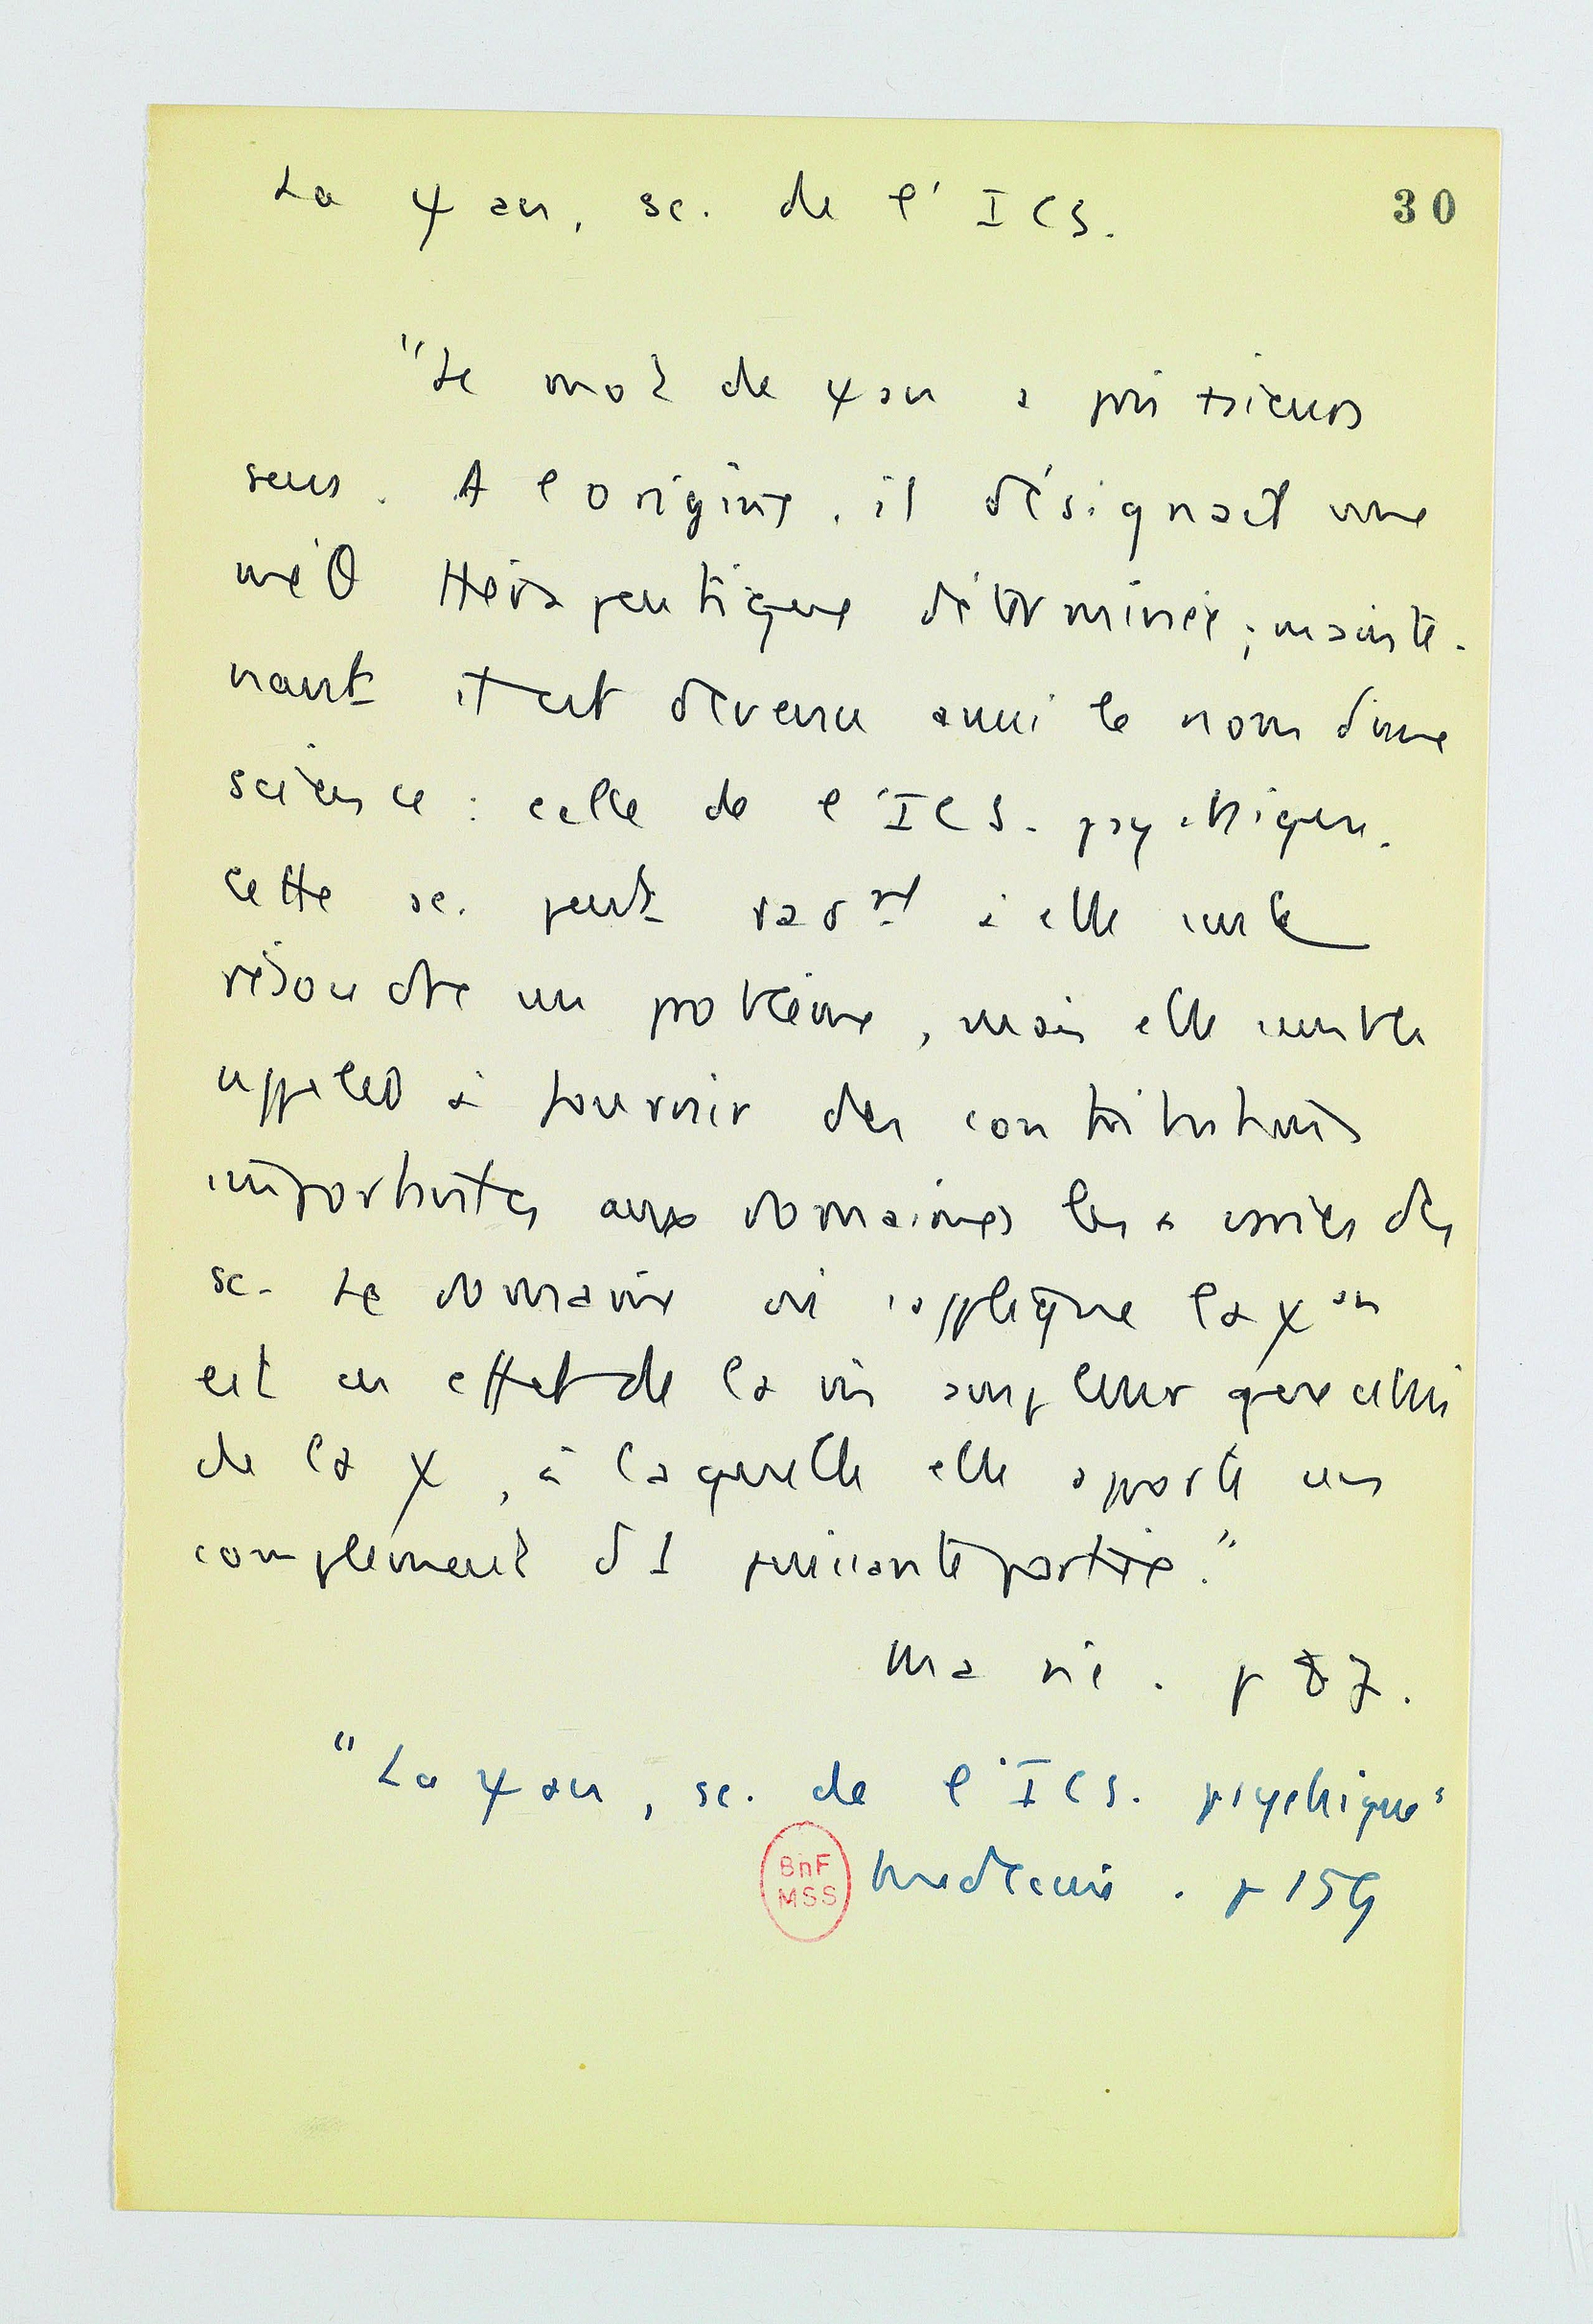 La ψ an, sc. de l'ICS.
30
"Le mot de ψan a pris +sieurs
sens. A l'origine, il désignait une
méθ thérapeutique déterminée ; mainte-
nant il est devenu aussi le nom d'une
science : celle de l'ICS. psychique.
Cette sc. peut rart à elle seule
résoudre un problème, mais elle semble
appelée à fournir des contributions
importantes aux domaines les + variés des
sc. Le domaine où s'applique la ψan
est en effet de la m ampleur que celui
de la ψ, à laquelle elle apporte un
complément d'1 puissante portée."
Ma vie. p 87.
"La ψ an, sc. de l'ICS. psychique"
BnF
MSS
Médecine. p 159